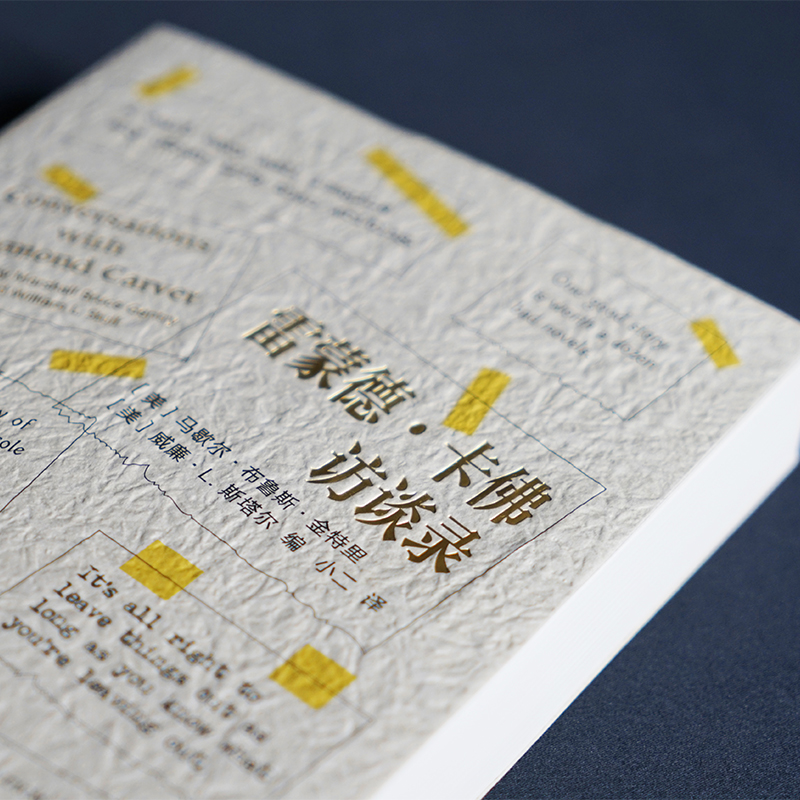 Conversations
with
Raymond Carver
One good story
is worth a dozen
bad novels.
雷蒙德·卡佛
访谈录
[美]马歇尔·布鲁斯·金特里
[美]威廉·L.斯塔尔 编 小二 译
y of
ole
It's all right to
leave things out as
long as you know what
you're leaving out.